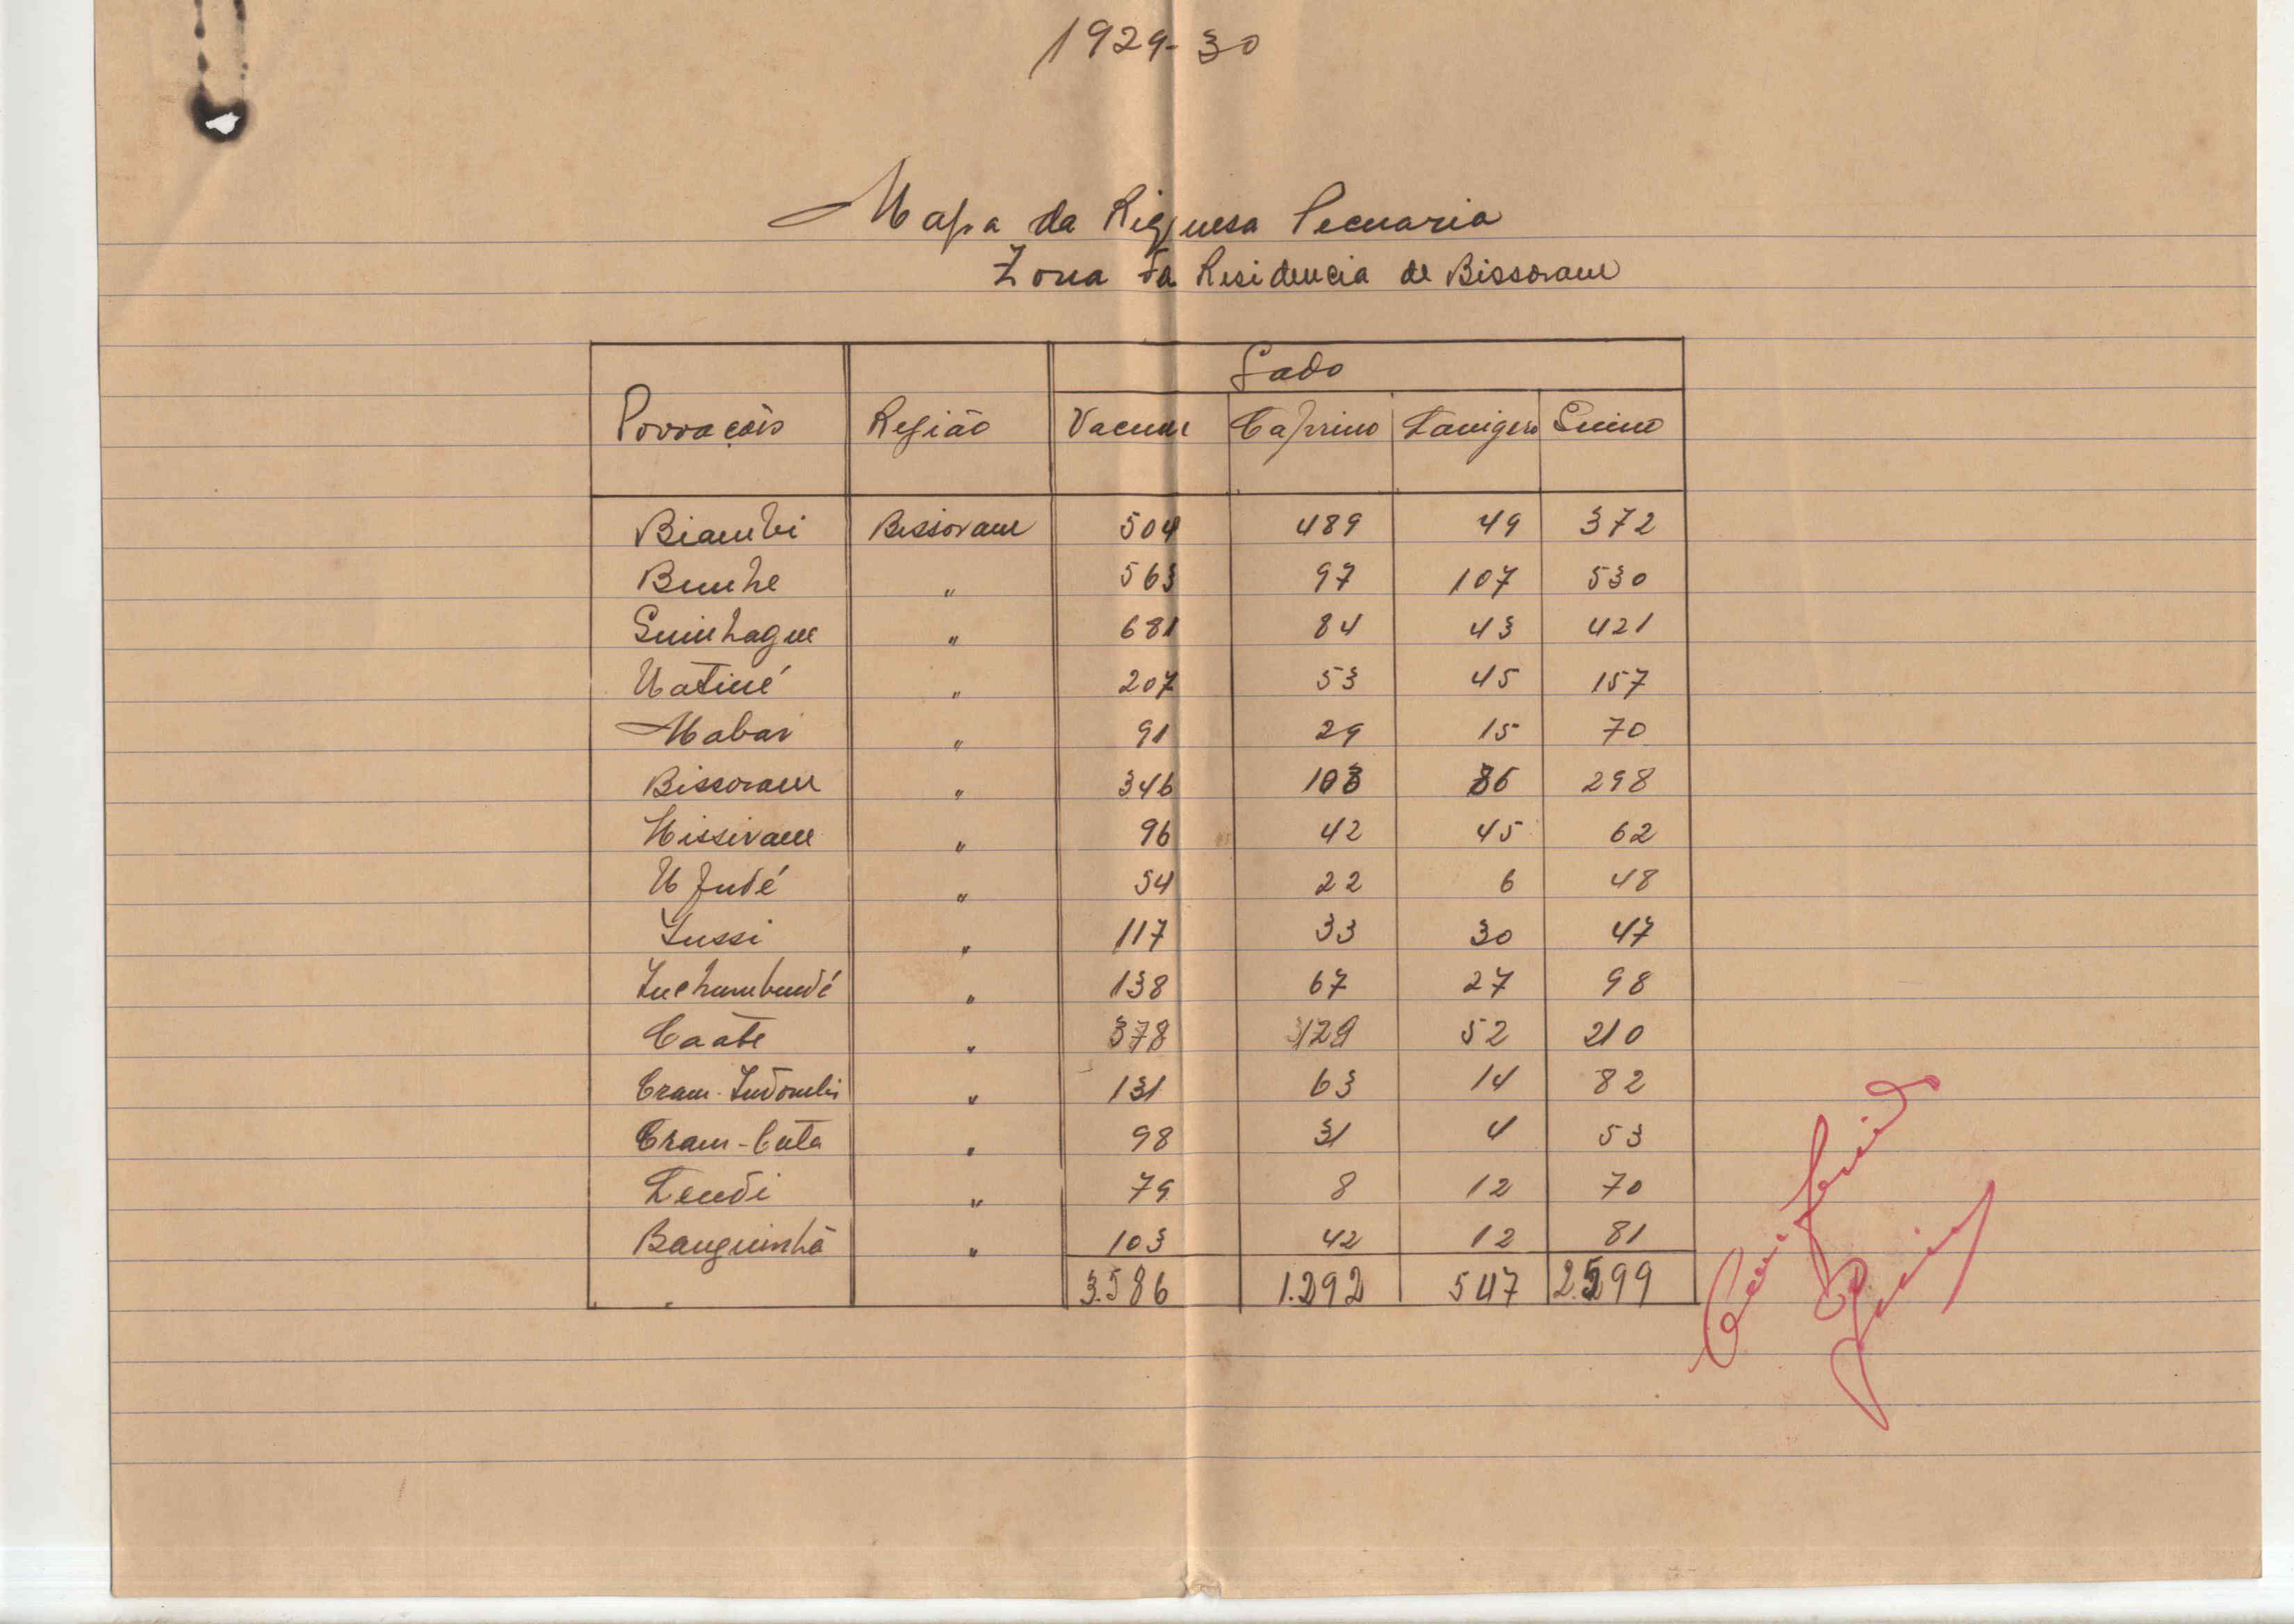 1929-30
Mapa da Riquesa Pecuaria
Zona da Residencia de Bissoram
Gado
Povoações Região Vacum Caprino Lanigero Suino
Biambi Bissoram 504 489 49 372
Bunhe " 563 97 107 530
Quinhaque " 681 84 43 421
Uatiné " 207 53 45 157
Mabar " 91 29 15 70
Bissoram " 346 103 86 298
Missiram " 96 42 45 62
N Fudé " 54 22 6 48
Iussi " 117 33 30 47
Inchumbundé " 138 67 27 98
Caate " 378 129 52 210
Cram-Indombi " 131 63 14 82
Cram-Cuta " 98 31 4 53
Lendi " 79 8 12 70
Banguinhã " 103 42 12 81
3.586 1.292 547 2.599